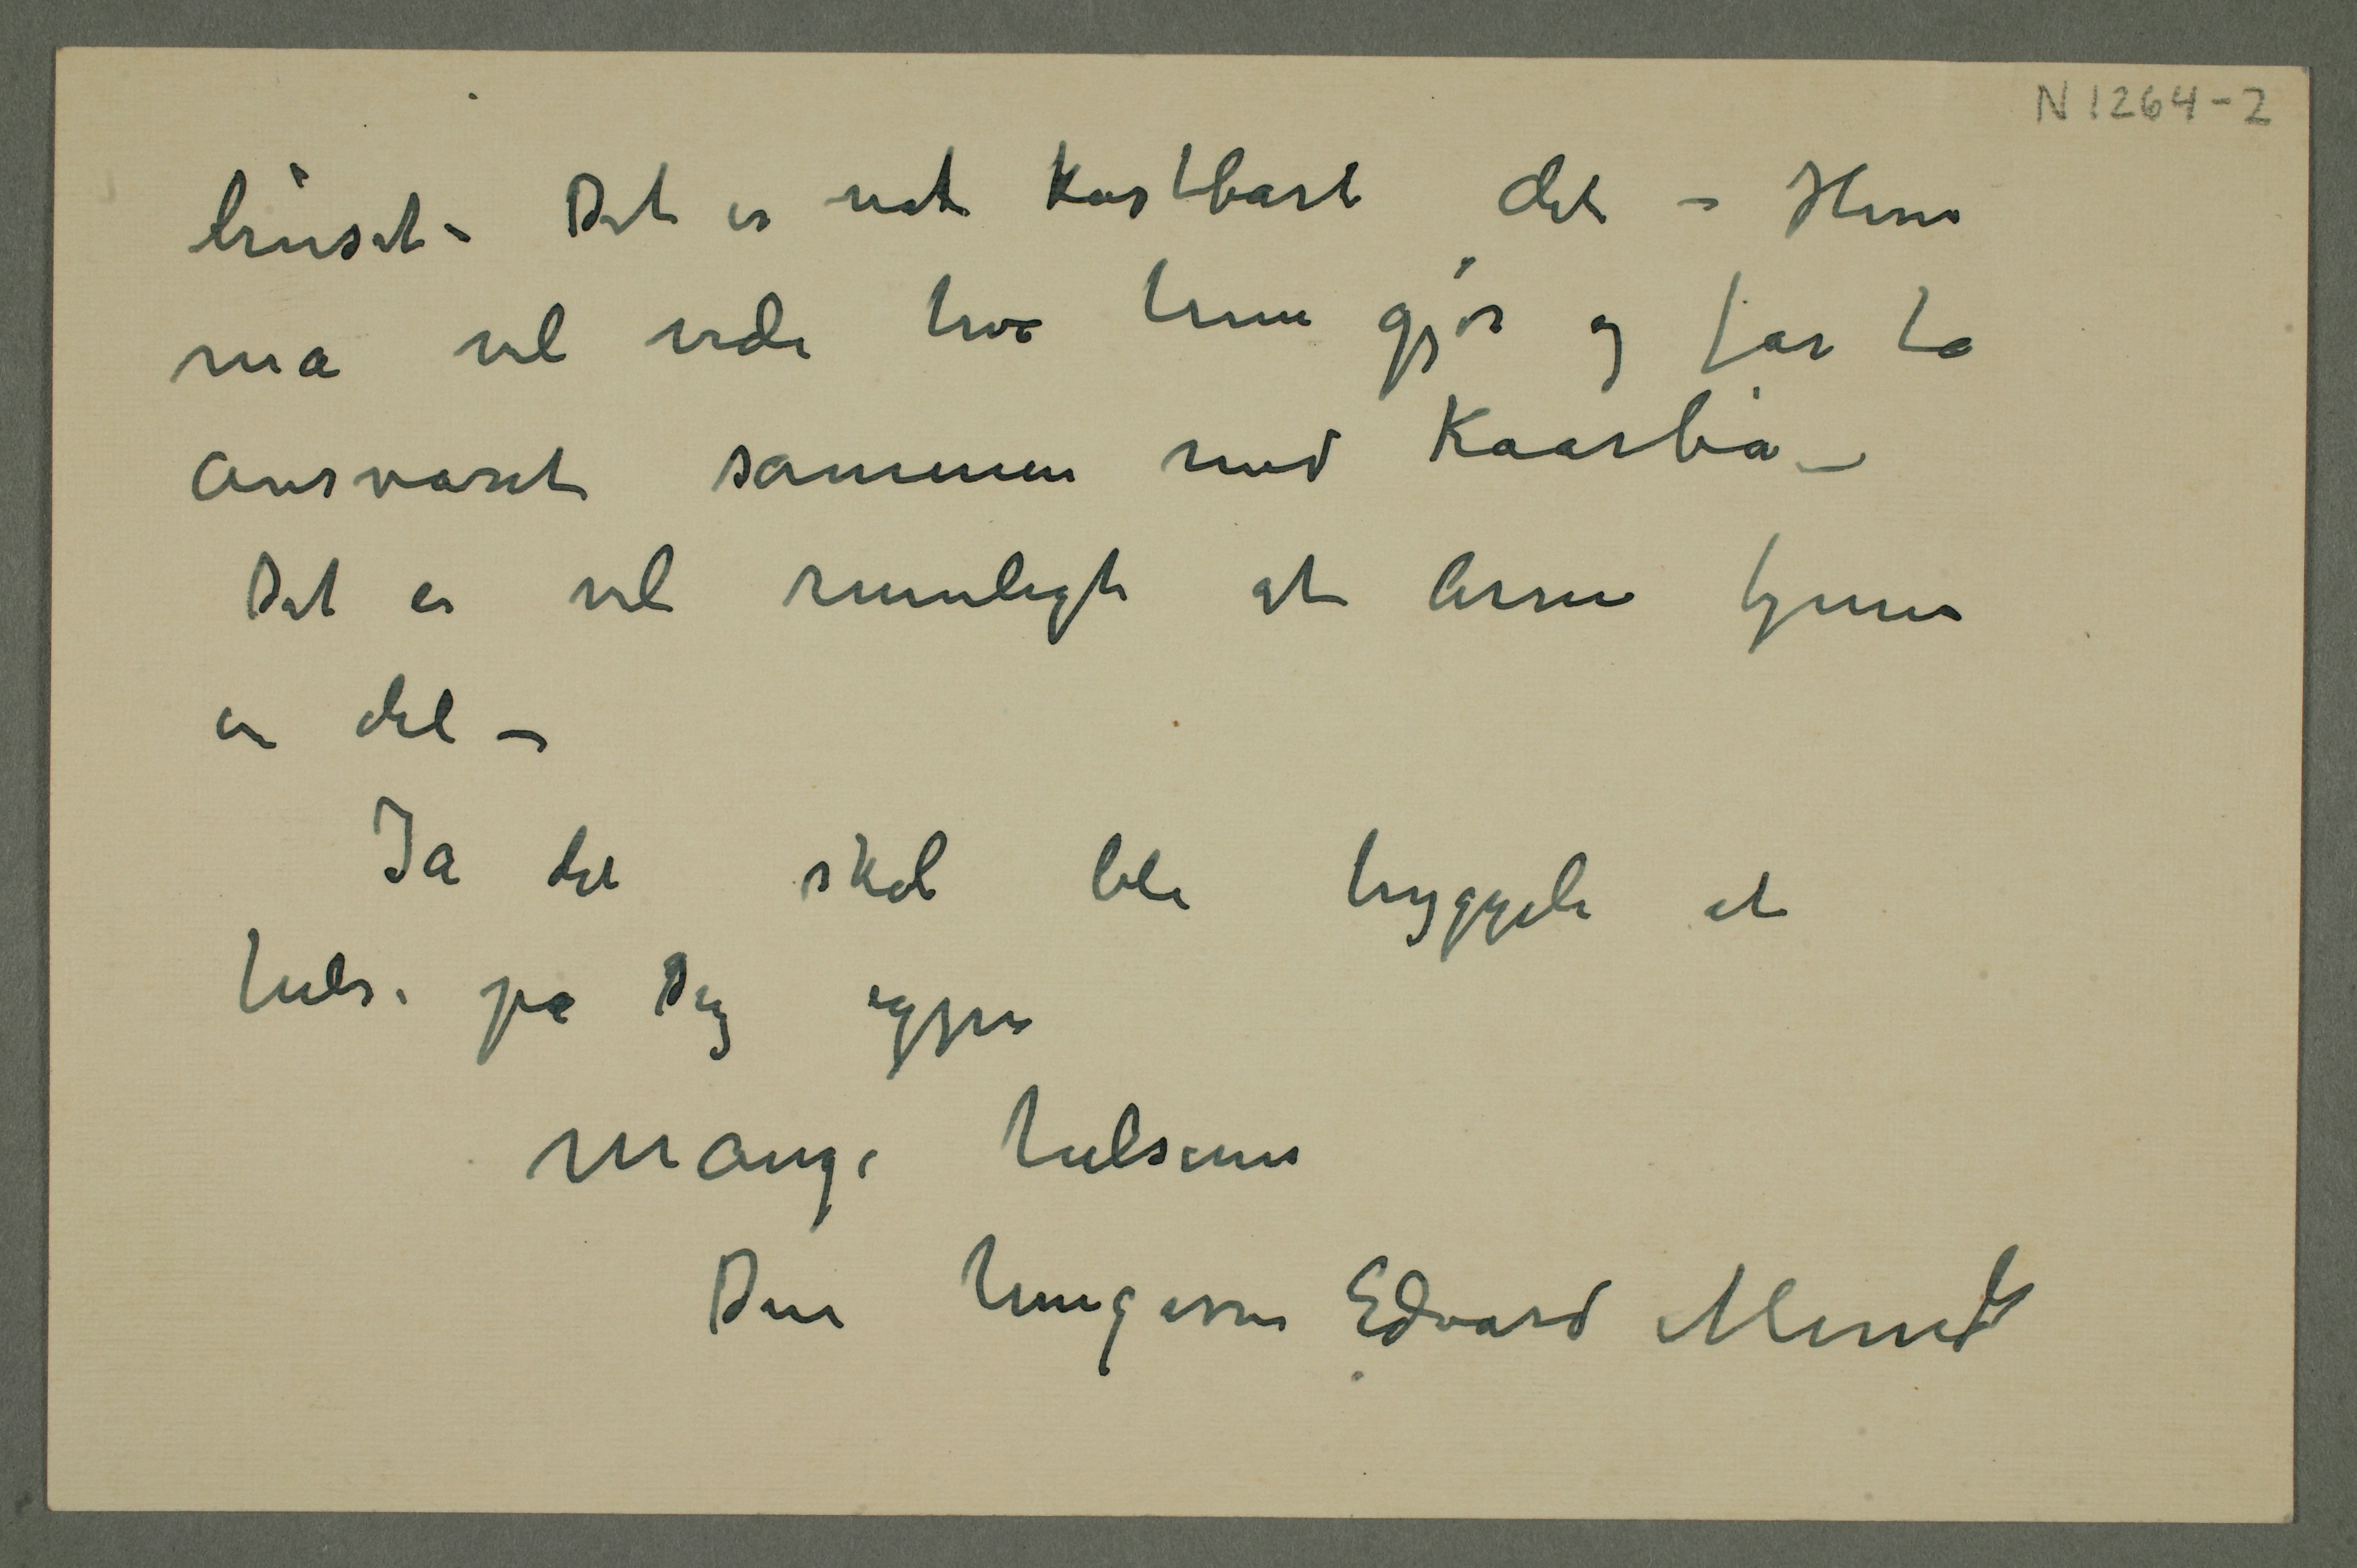 N 1264-2
huset – Det er nok kostbart det – Hun
må vel vide hva hun gjør og får ta
ansvaret sammen med Kaarbø –
Det er vel rimeligt at Arne tjener
en del –
Ja det skal ble hyggeli at
hilse på Dig igjen
Mange hilsener
Din hengivne Edvard Munch